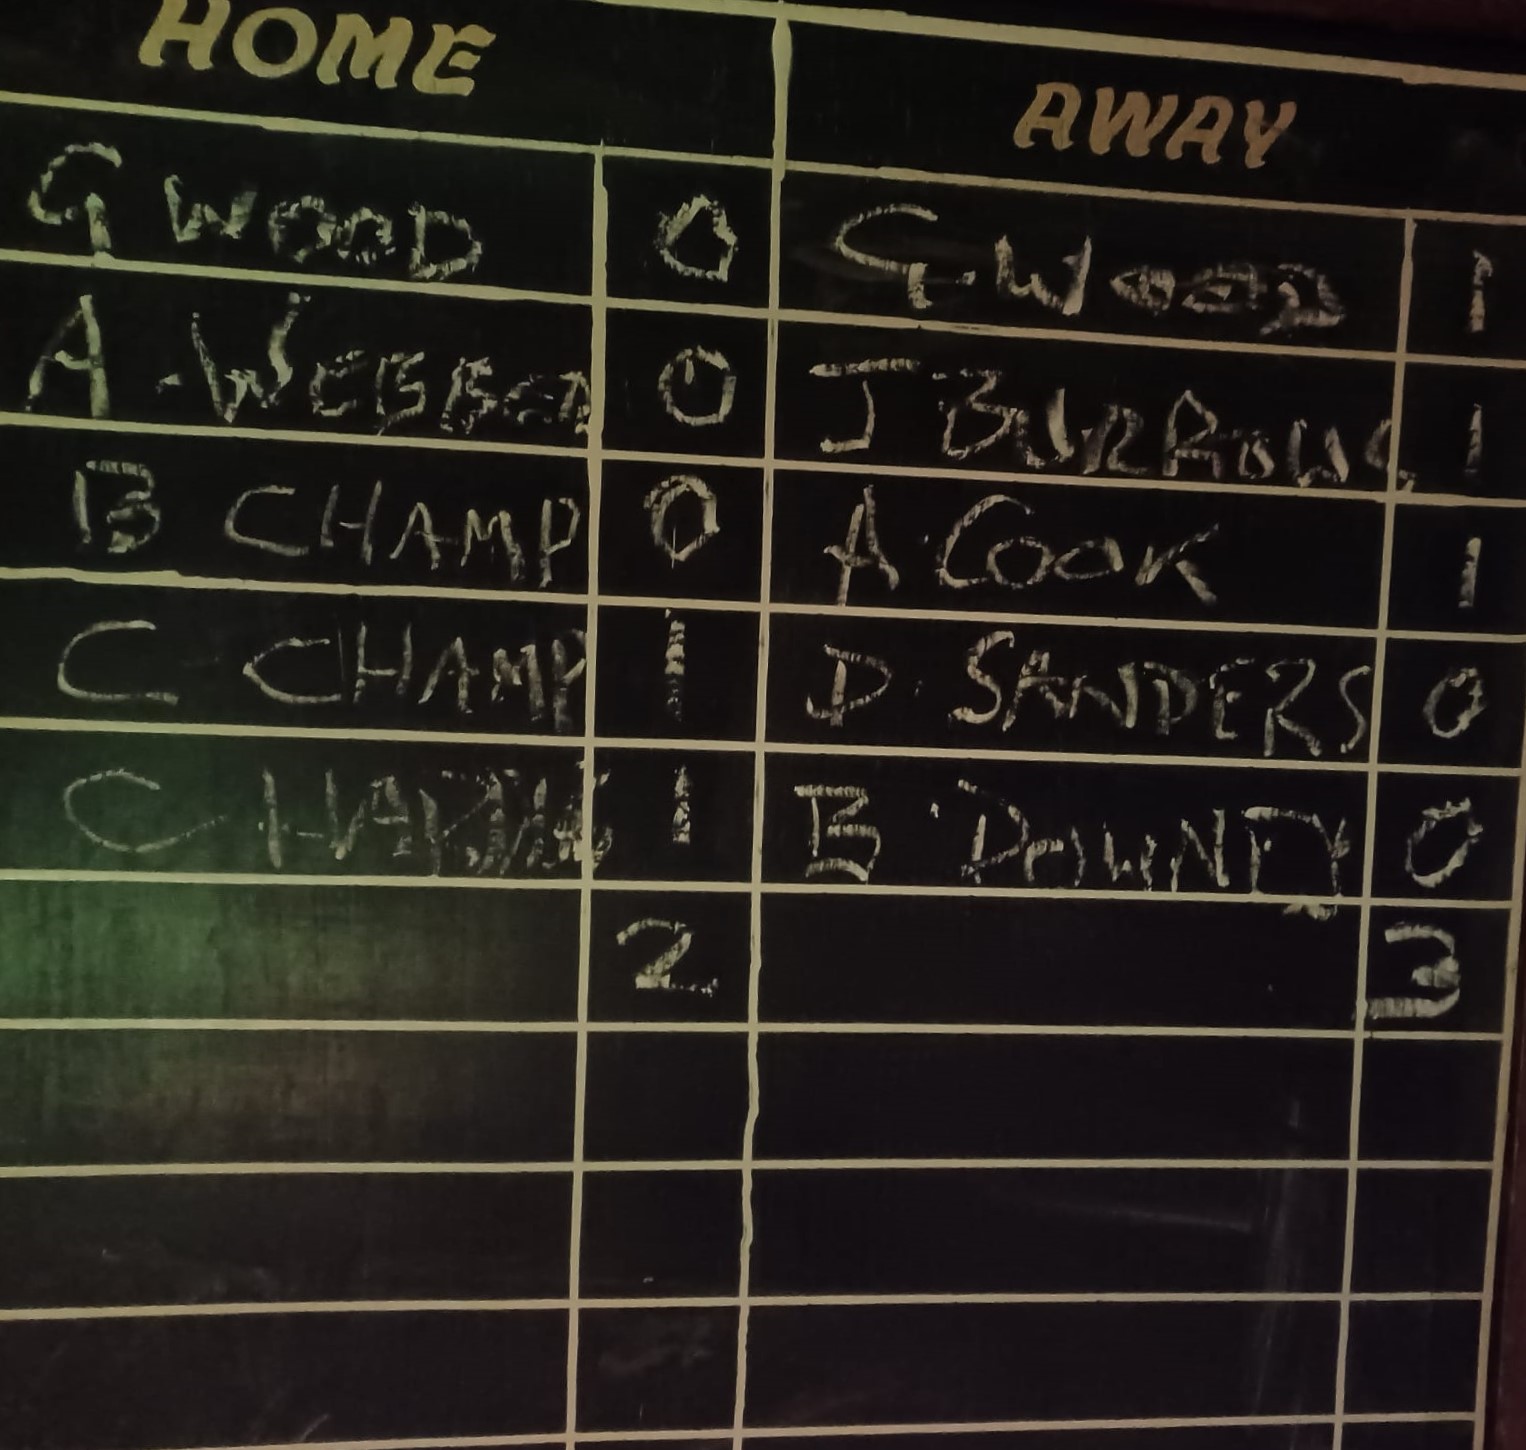 HOME AWAY
G WOOD 0 G.WOOD 1
A.WEBBER 0 J BURROWS 1
B CHAMP 0 A COOK 1
C CHAMP 1 D SANDERS 0
C 1 B DOWNEY 0
2 3